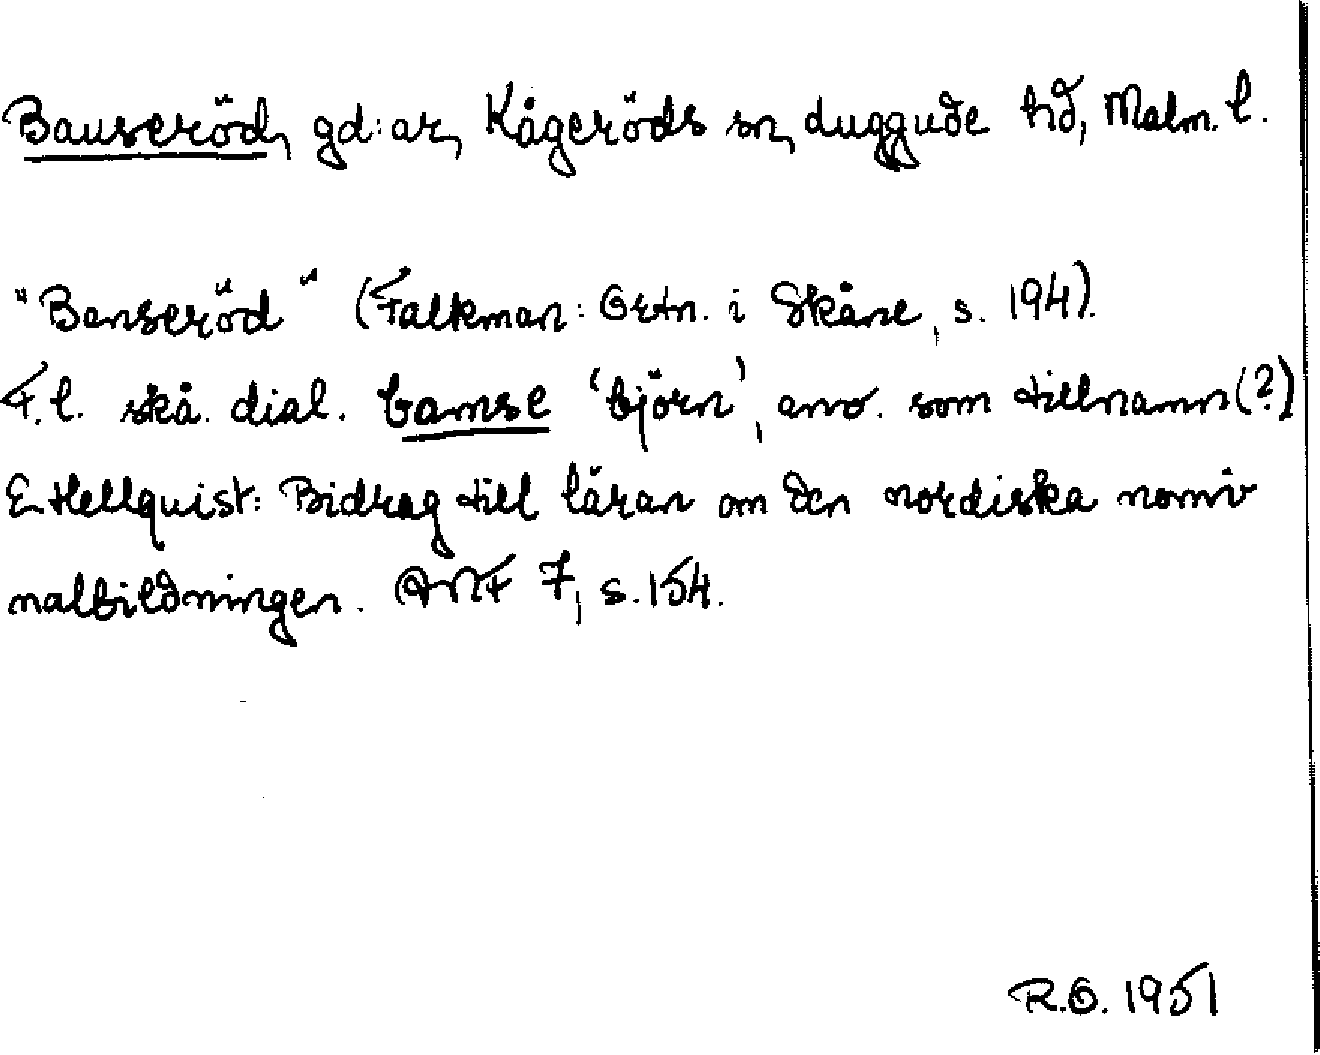 Bauseröd, gd:ar, Kågeröds sn, Luggude hd, Malm. l.
"Banseröd" (Falkman: Ortn. i Skåne, s. 194).
F.l. skå. dial. bamse 'björn', anv. som tillnamn (?)
E. Hellquist: Bidrag till läran om den nordiska nomi-
nalbildningen. ANF 7, s. 154.
R.O. 1951